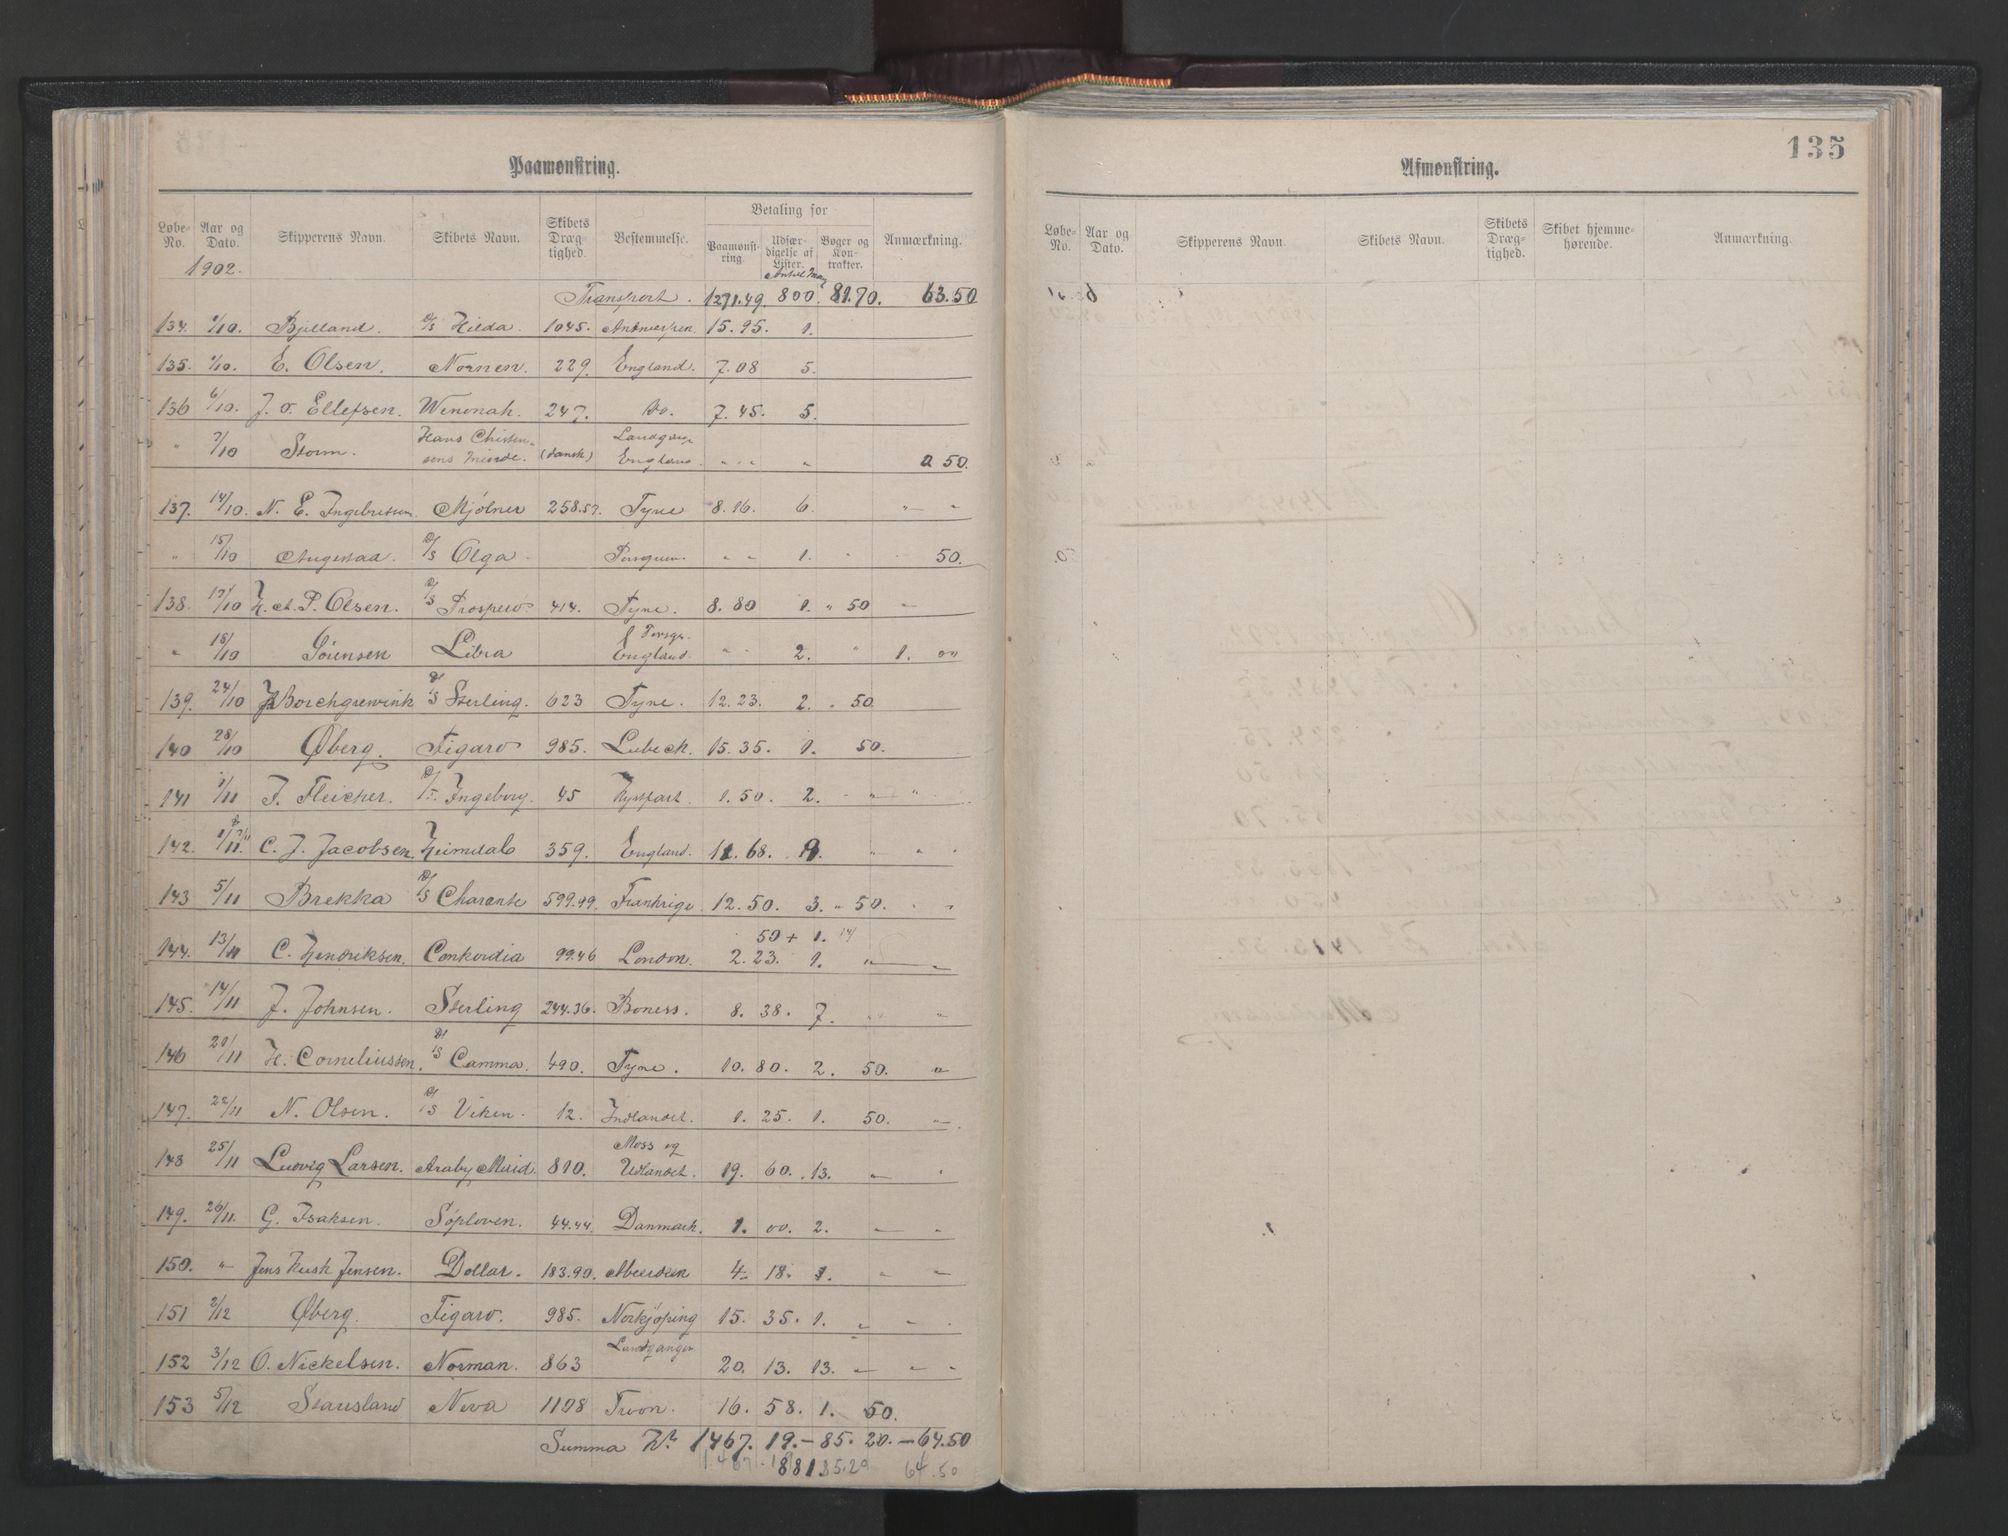 Paamønstring.
Løbe-No. Aar og Dato. Skipperens Navn. Skibets Navn. Skibets Dræg-tighed. Bestemmelse. Betaling for Paamønst-ring. Udfær-digelse af Lister. Bøger og Kon-trakter. Anmærkning.
1902. Antal
Transport. 1271.49. 800. 81.70. 63.50
134. 1/10. Bjelland. D/S Hilda. 1045. Antwerpen. 15.95. 1.
135. 1/10. E. Olsen. Nornen. 229. England. 7.08 5.
136 6/10. J. O. Ellefsen. Wenonah. 247. Do. 7.45. 5.
" 7/10 Storm. Hans Christen-sens Minde. (dansk) England " " " 0 50.
137. 14/10. N. E. Ingebretsen Mjölner 258.57. Tyne 8.16. 6. " "
" 15/10 D/S Olga Porsgrun. " " 1. " 50.
138. 17/10 H. A. P. Olsen. D/S Prospero. 414. Tyne. 8.80 1. " 50 "
" 18/10 Sörensen Libra Porsgr. England. " " 2. " 1. 00
139. 24/10 Borchgrewink D/S Sterling. 623 Tyne. 12.23. 2. " 50
140 28/10 Øberg. Figaro 985. Lubeck. 15.35. 1. 50.
141 1/11 J. Fleicher. D/S Ingeborg. 45 Kystfart. 1.50. 2. " " "
142. 1/11. C. J. Jacobsen. Heimdal 359. England. 11.68. 9. " " "
143 5/11 Brekka D/S Charente 599.99. Frankrige. 12.50. 3. " 50. " "
50 + 1.
144. 13/11 C. Hendriksen. Conkordia 99.46 London. 2.23. 1. " "
145. 14/11 J. Johnsen. Sterling 244.36. Boness. 8.38. 7. " "
146 20/11 H. Corneliussen. D/S Camma. 490. Tyne. 10.80. 2. 50. "
147. 22/11 N. Olsen. D/S Viken. 12. Indlandet. 1.25. 1. 50. "
148 25/11 Ludvig Larsen. Araby Maid. 810. Moss og Udlandet. 19.60. 13. " "
149. 26/11. G. Isaksen. Söploven. 44.44. Danmark. 1.00. 2. " "
150. " Jens Kusk Jensen. Dollar. 183.90. Aberdeen 4. 18. 1. " "
151 2/12 Øberg. Figaro. 985. Norkjöping 15.35. 1. " " "
152 3/12 O. Nickelsen. Norman. 863 Landgangen 20.13. 13. " " "
153 5/12 Stausland Neva 1198 Troon. 16.58. 1. 50.
Summa Kr 1467.19.– 85.20.– 64.50
881 85.20 64.50
135
Afmønstring.
Løbe-No. Aar og Dato. Skipperens Navn. Skibets Navn. Skibets Dræg-tighed. Skibet hjemme-hørende. Anmærkning.